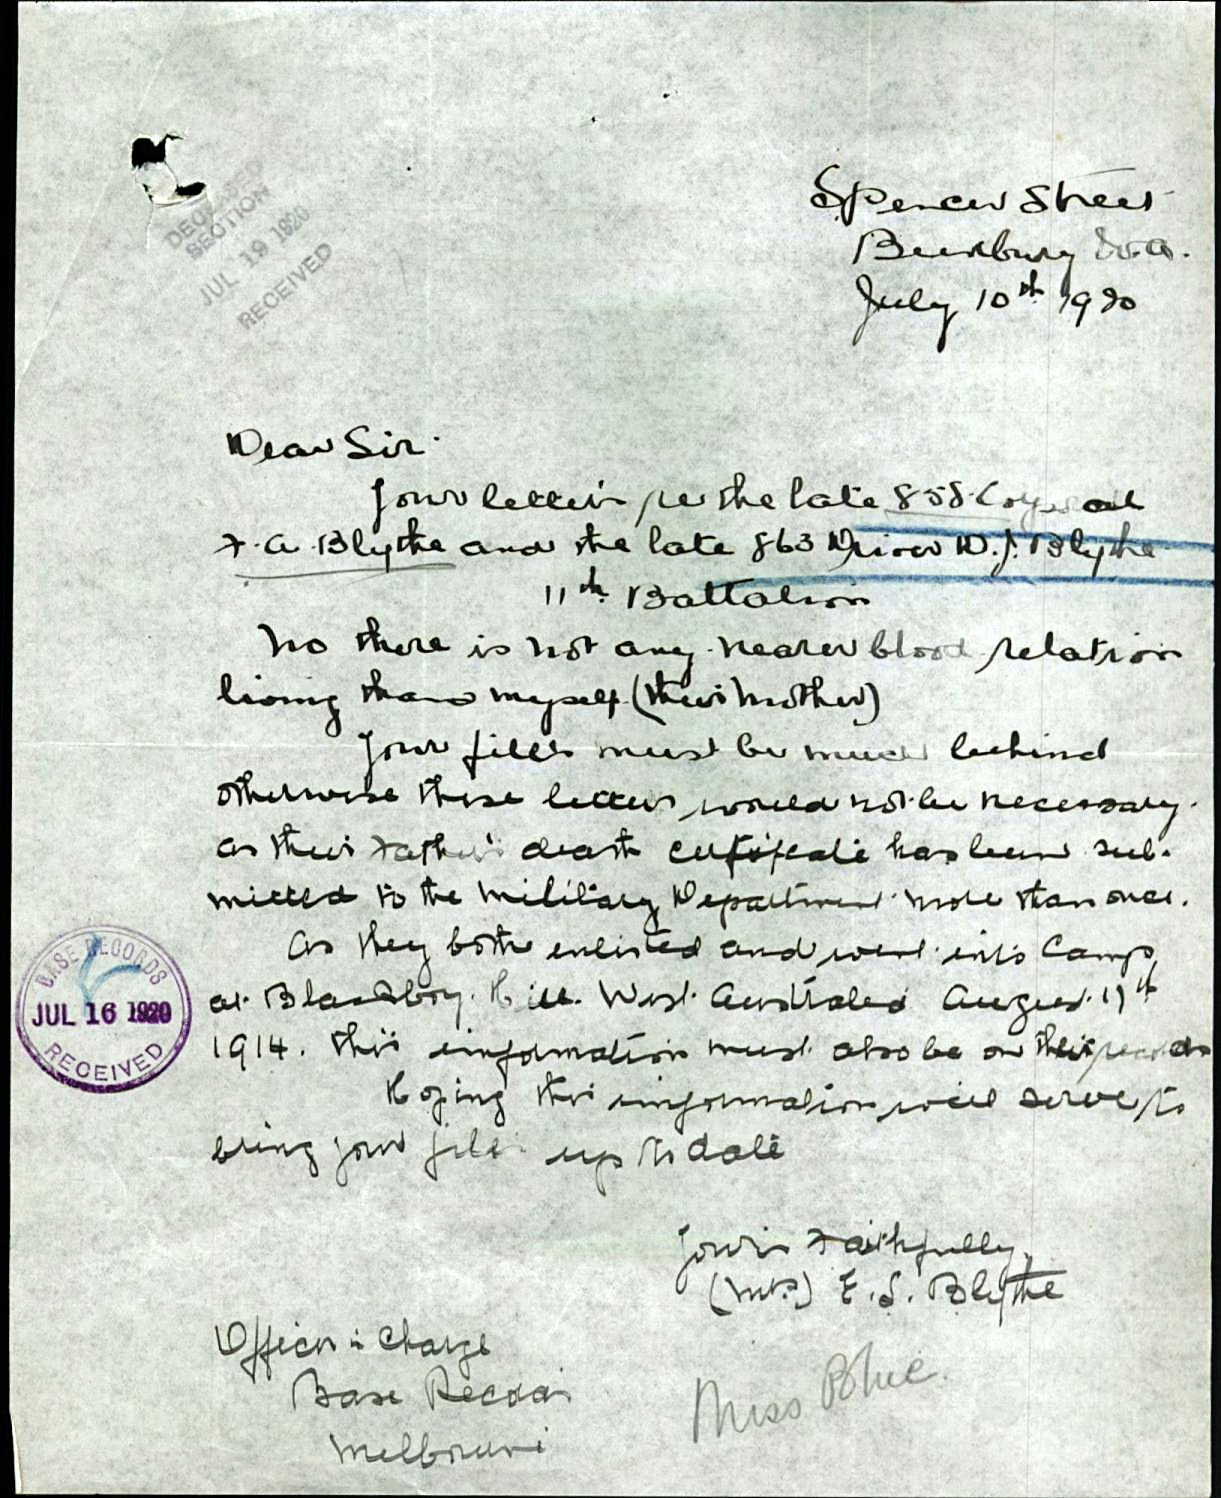 DECEASED
SECTION
JUL 19 1920
RECEIVED
Spencer Street
Bunbury W.A.
July 10th 1920
Dear Sir.
Your letters re the late 858 Corporal
F. A. Blythe and the late 863 Driver W. J. Blythe
11th Battalion
No there is not any nearer blood relation
living than myself (their Mother)
Your files must be much behind
otherwise these letters would not be necessary.
as their Father's death certificate has been sub-
mitted to the Military Department more than once.
As they both enlisted and went into Camp
at Blackboy Hill. West Australia August 17th
1914. this information must also be on their records
Hoping this information will serve to
bring your files up to date
Yours Faithfully
(Mrs) E. S. Blythe
Officer i Charge
Base Records
Melbourne
Miss Blue.
BASE RECORDS
JUL 16 1920
RECEIVED